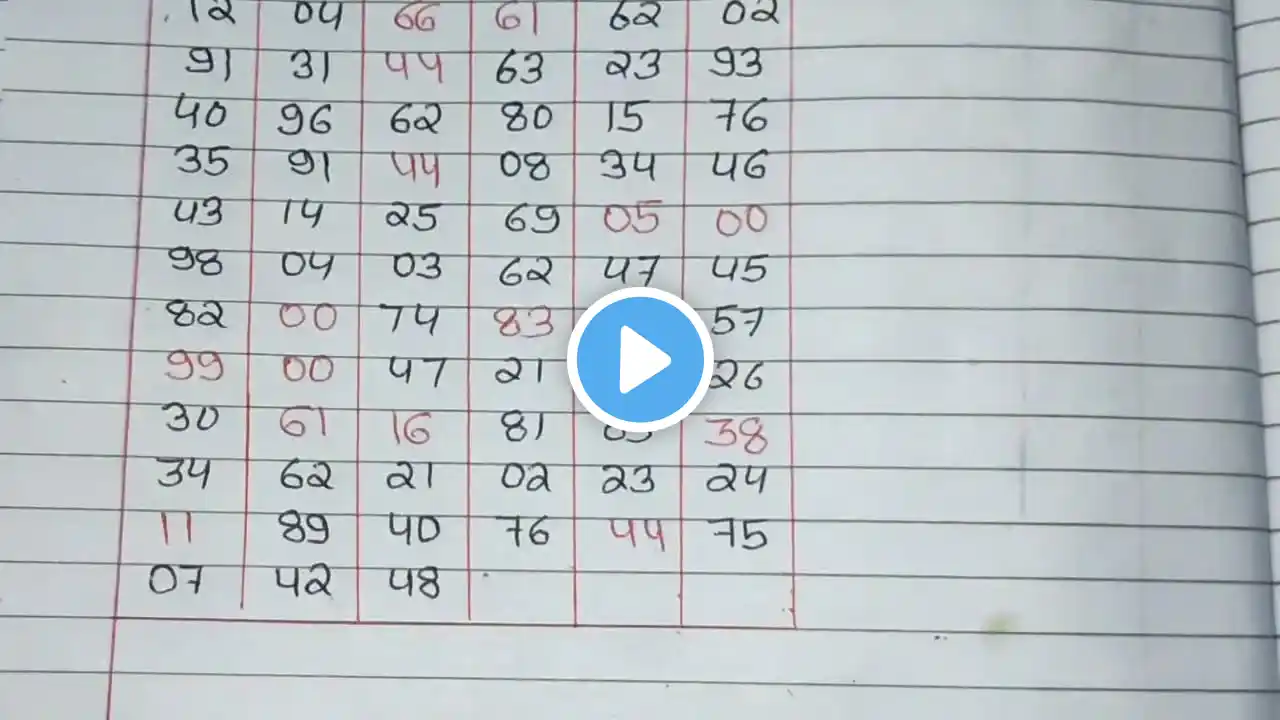 12 04 66 61 62 02
91 31 44 63 23 93
40 96 62 80 15 76
35 91 44 08 34 46
43 14 25 69 05 00
98 04 03 62 47 45
82 00 74 83 57
99 00 47 21 26
30 61 16 81 38
34 62 21 02 23 24
11 89 40 76 44 75
07 42 48